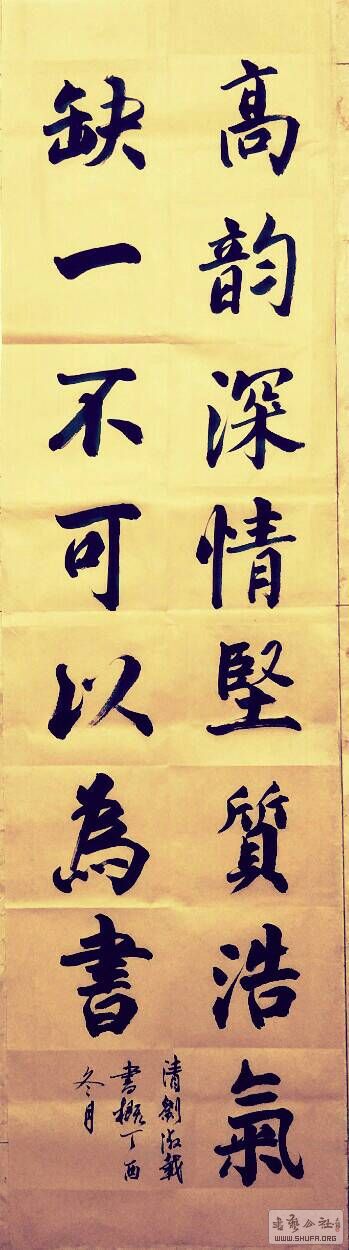 高韵深情堅質浩氣
缺一不可以為書
清劉淑載
書概丁酉
冬月
書藝公社
WWW.SHUFA.ORG